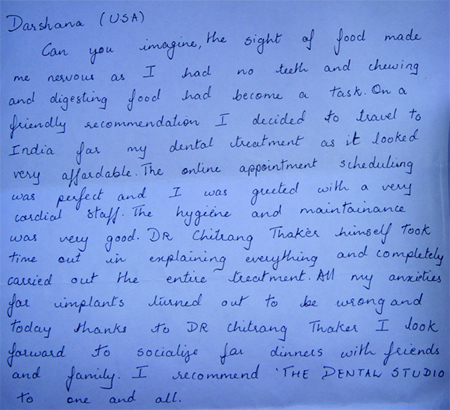 Darshana (USA)
Can you imagine, the sight of food made
me nervous as I had no teeth and chewing
and digesting food had become a task. On a
friendly recommendation I decided to travel to
India for my dental treatment as it looked
very affordable. The online appointment scheduling
was perfect and I was greeted with a very
cordial staff. The hygiene and maintainance
was very good. DR Chitrang Thaker himself took
time out in explaining everything and completely
carried out the entire treatment. All my anxieties
for implants turned out to be wrong and
today thanks to DR Chitrang Thaker I look
forward to socialize for dinners with friends
and family. I recommend 'THE DENTAL STUDIO
to one and all.